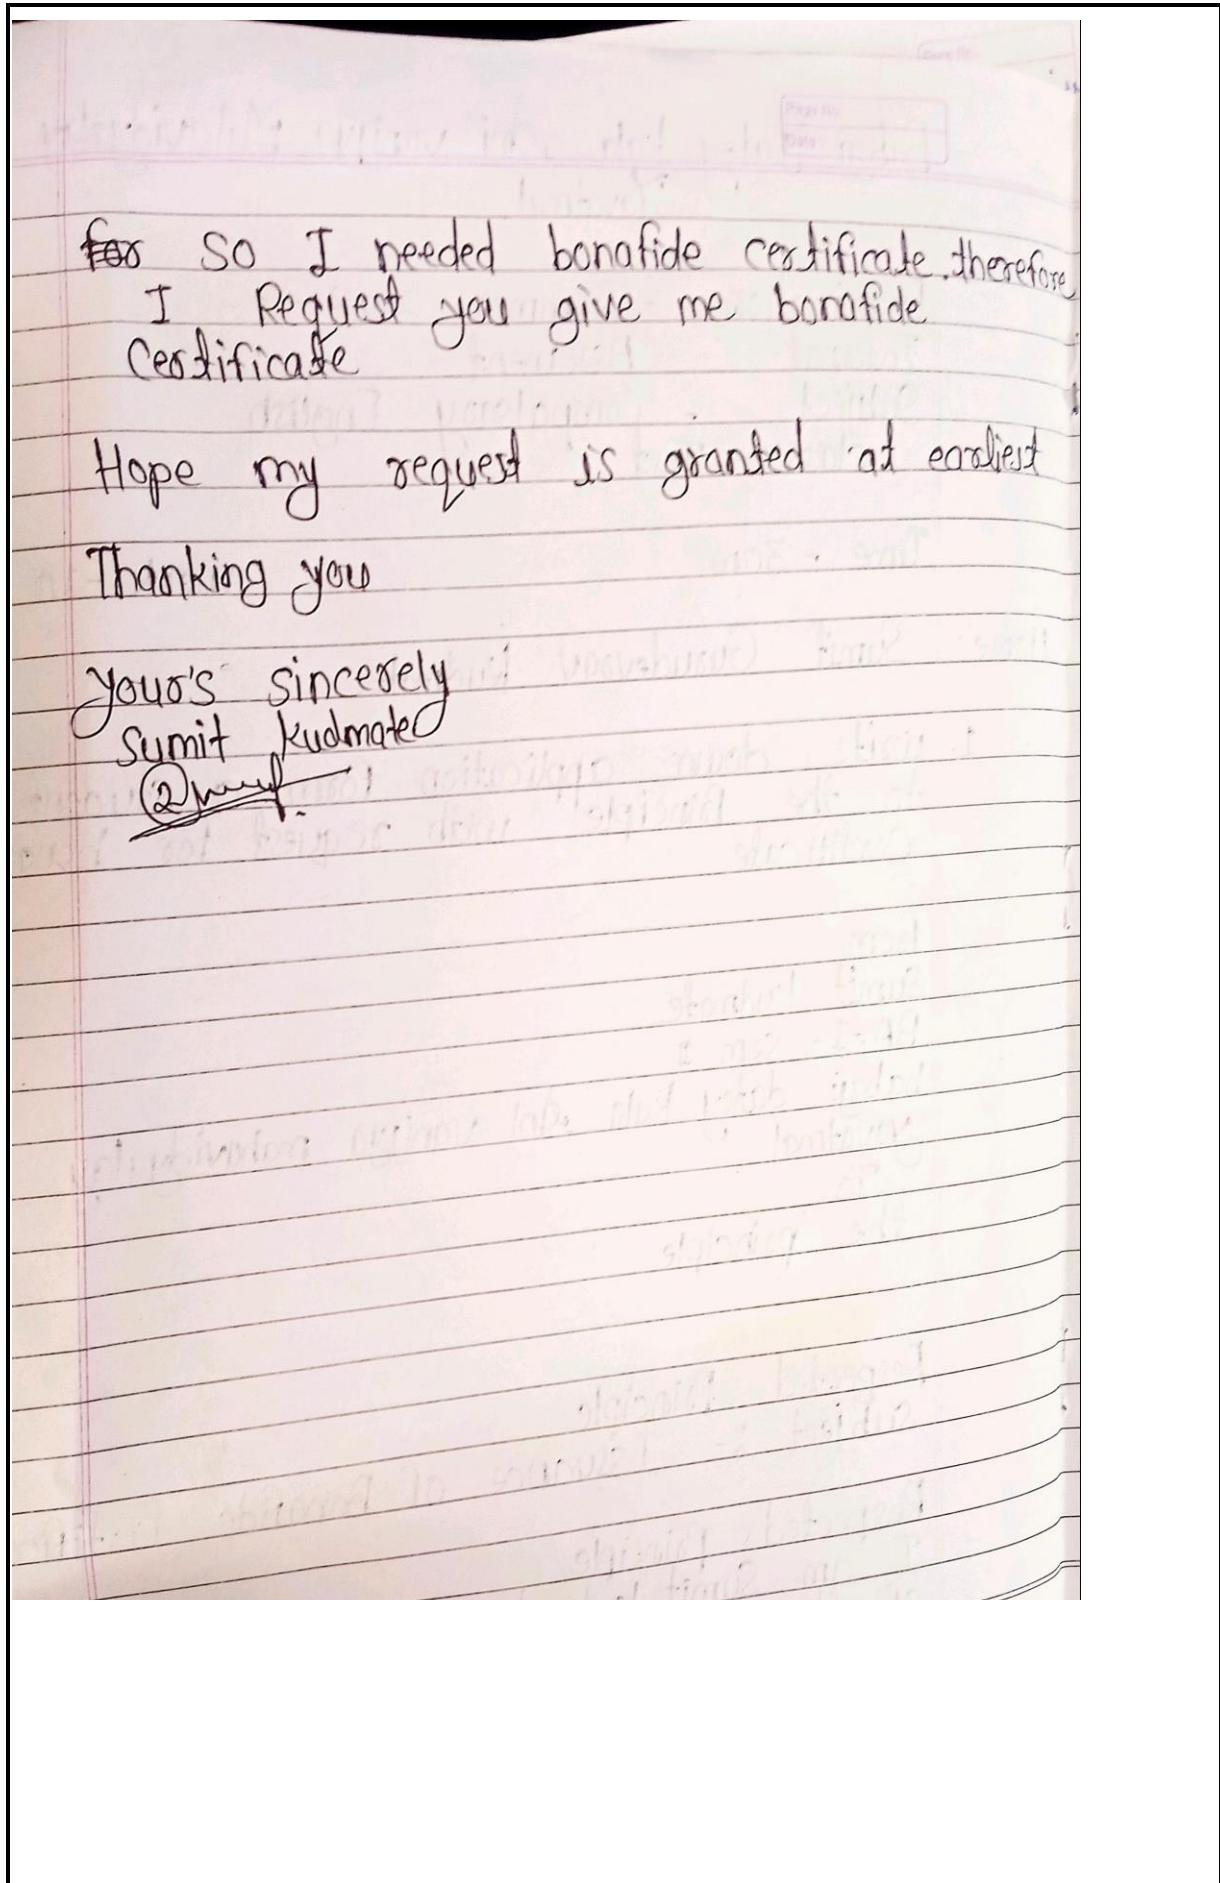 for So I needed bonafide certificate. therefore
I Request you give me bonafide
Certificate
Hope my request is granted at earliest
Thanking you
Your's sincerely
Sumit Kudmate